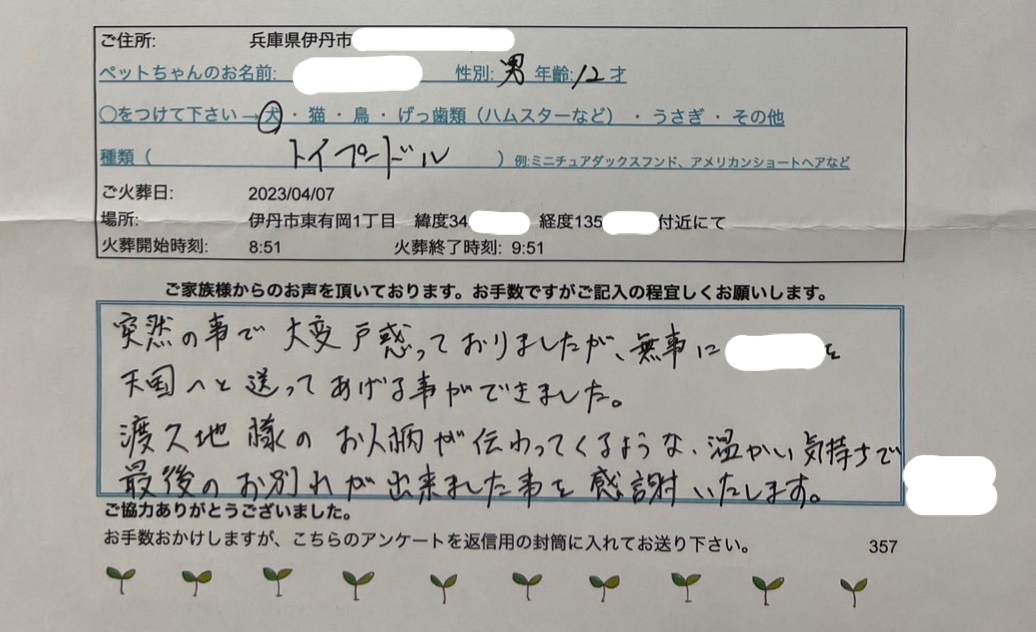 ご住所: 兵庫県伊丹市
ペットちゃんのお名前: 性別:男 年齢:12才
○をつけて下さい→犬・猫・鳥・げっ歯類(ハムスターなど)・うさぎ・その他
種類( トイプードル ) 例:ミニチュアダックスフンド、アメリカンショートヘアなど
ご火葬日: 2023/04/07
場所: 伊丹市東有岡1丁目 緯度34 経度135 付近にて
火葬開始時刻: 8:51 火葬終了時刻: 9:51
ご家族様からのお声を頂いております。お手数ですがご記入の程宜しくお願いします。
突然の事で大変戸惑っておりましたが、無事に を
天国へと送ってあげる事ができました。
渡久地様のお人柄が伝わってくるような、温かい気持ちで
最後のお別れが出来ました事を感謝いたします。
ご協力ありがとうございました。
お手数おかけしますが、こちらのアンケートを返信用の封筒に入れてお送り下さい。 357